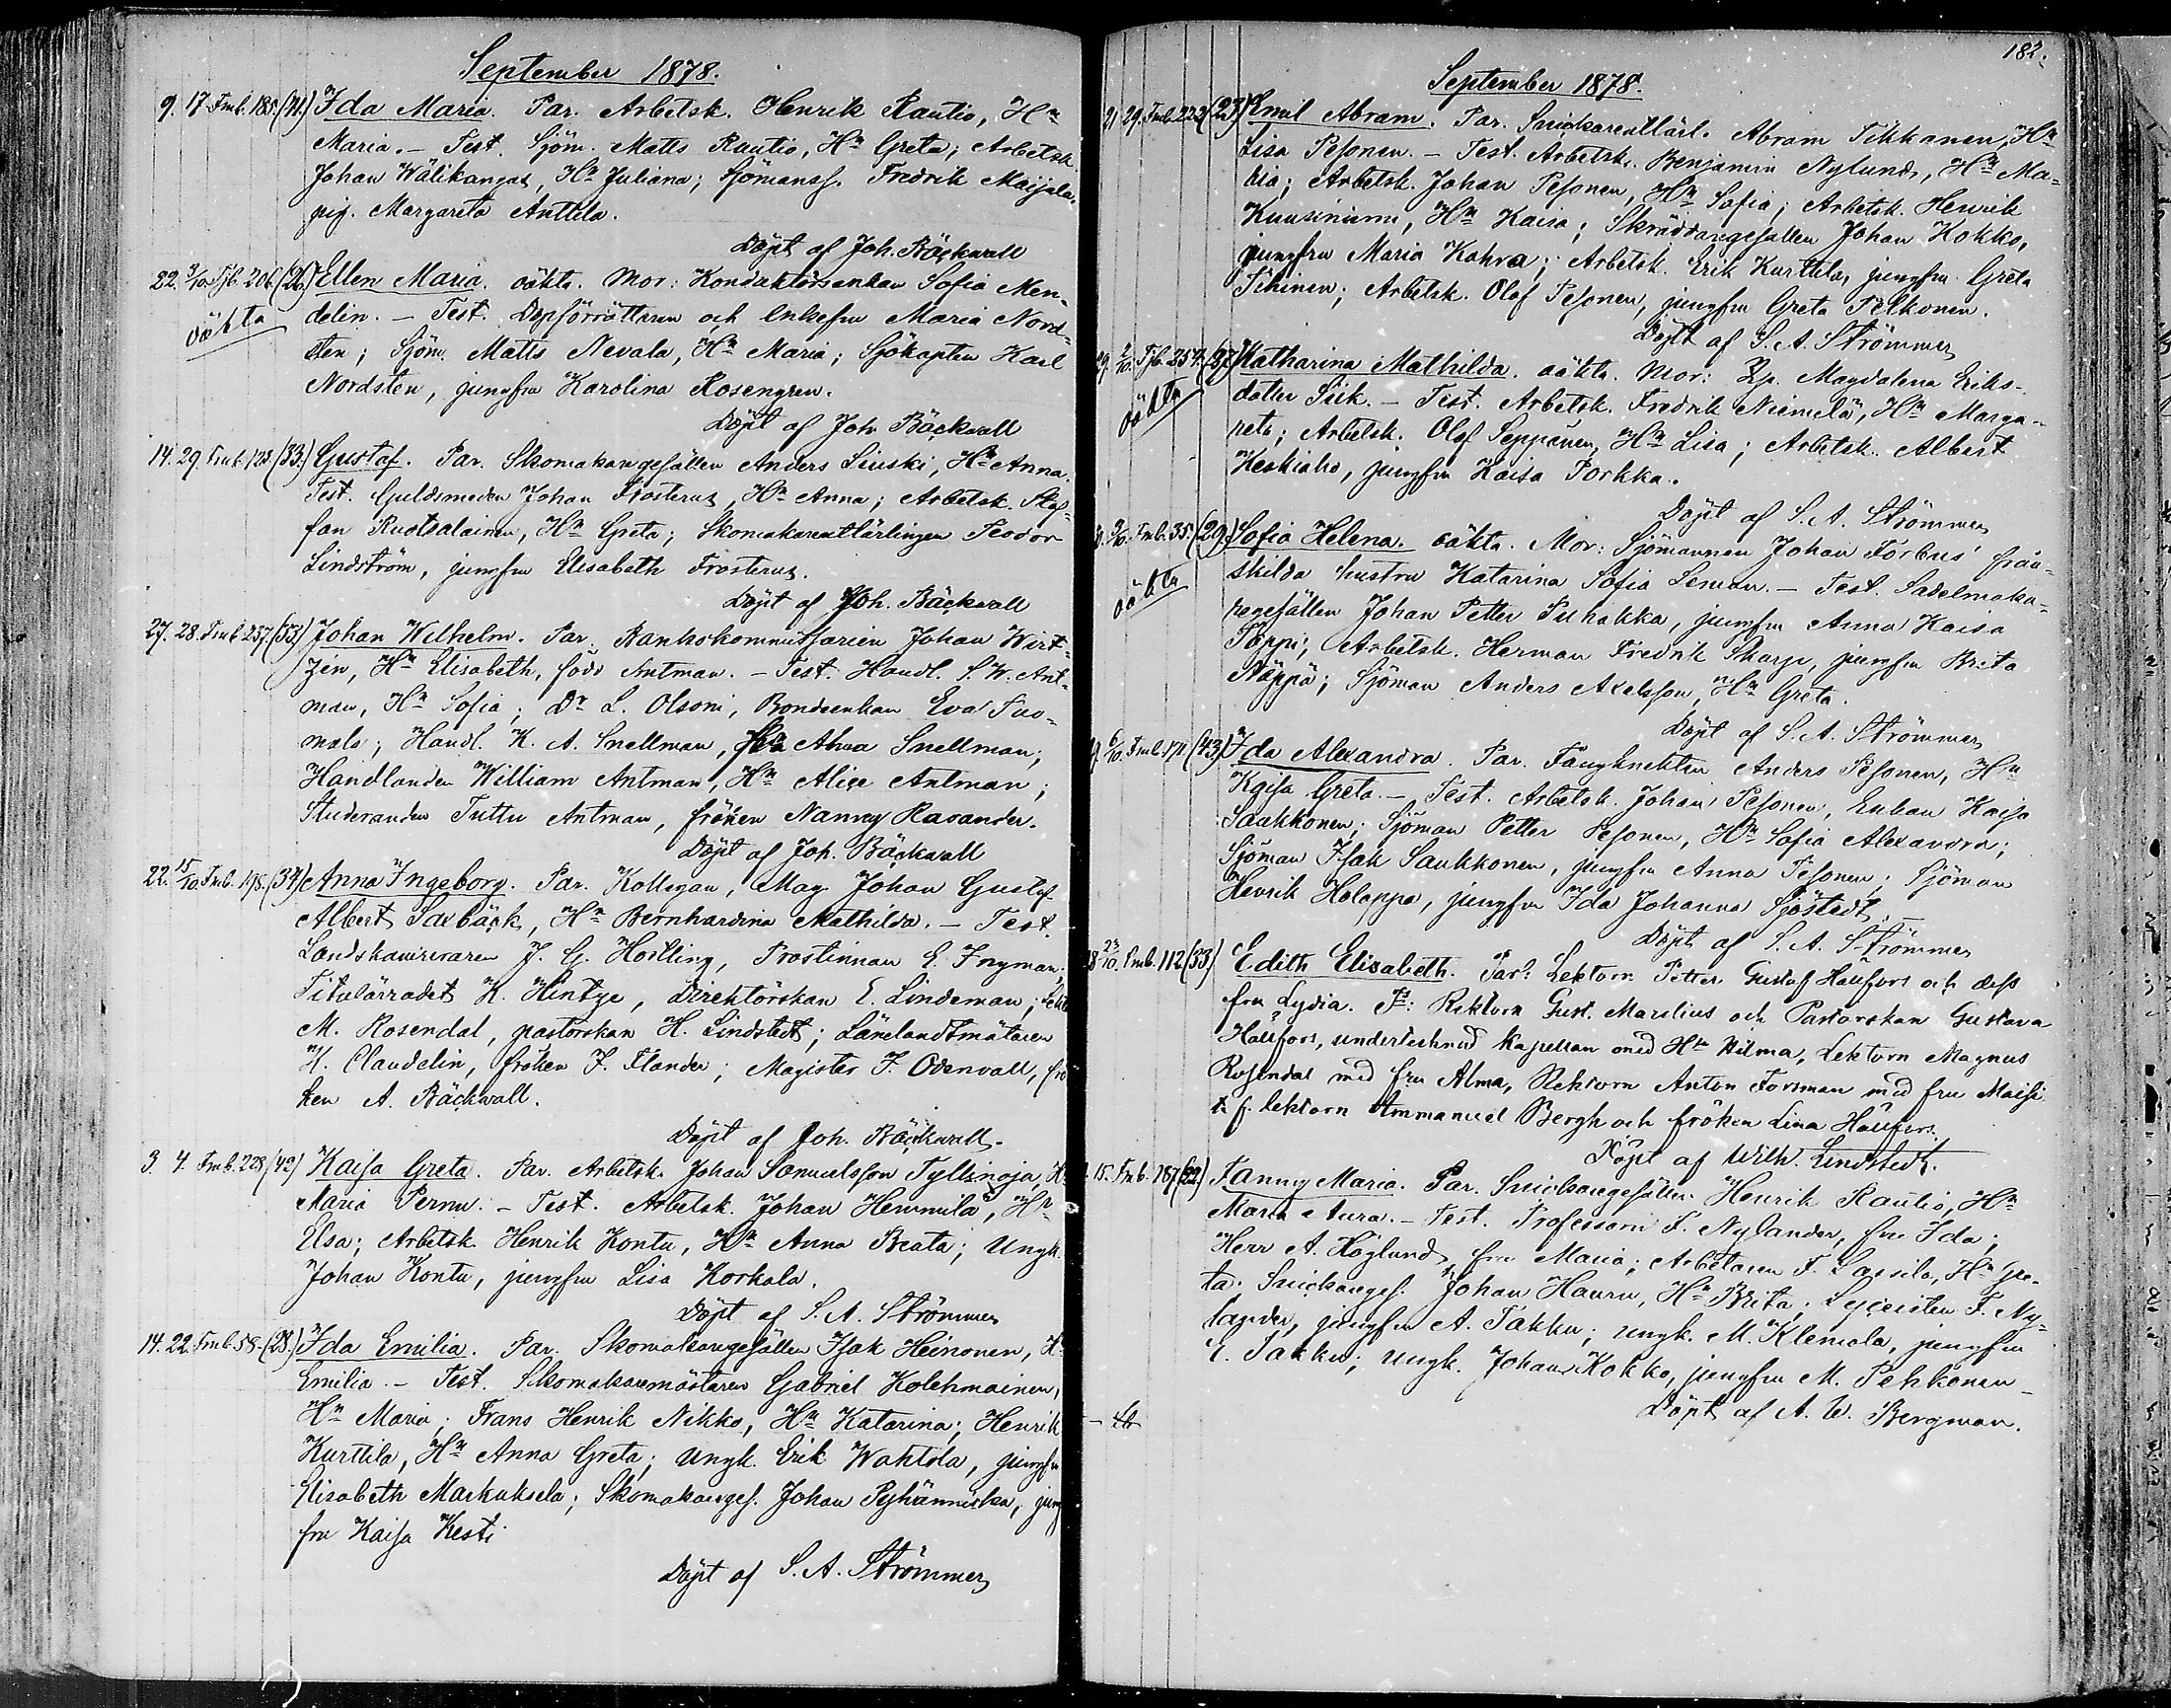 September 1878.
9. 17. Fmb. 185. (41.) Ida Maria. Par. Arbetsk. Henrik Rautio, Hn
Maria. – Test. Sjöm. Matts Rautio, Hn Greta; Arbetsk.
Johan Wälikangas, Hn Juliana; Sjömansf. Fredrik Maijala,
pig. Margareta Anttila.
Döpt af Joh. Bäckwall
22. 3/10 Tjb. 206. (26) Ellen Maria. oäkta. Mor: Konduktörsenkan Sofia Men-
oäkta delin. – Test. Dopförrättaren och enkefru Maria Nord-
sten; Sjöm. Matts Nevala, Hn Maria; Sjökapten Karl
Nordsten, jungfru Karolina Rosengren.
Döpt af Joh. Bäckwall
14. 29. Fmb. 123. (33.) Gustaf. Par. Skomakaregesällen Anders Liuski, Hn Anna.
Test. Guldsmeden Johan Frosterus, Hn Anna; Arbetsk. Staf-
fan Ruotsalainen, Hn Greta; Skomakareutlärlingen Teodor
Lindström, jungfru Elisabeth Frosterus.
Döpt af Joh. Bäckwall
27. 28. Fmb. 257. (33) Johan Wilhelm. Par. Bankokommissarien Johan Wirt-
zén, Hn Elisabeth, född Antman. – Test. Handl. S. W. Ant-
man, Hn Sofia; Dr L. Olsoni, Bondeenkan Eva Suo-
mala; Handl. K. A. Snellman, fru Alma Snellman;
Handlanden William Antman, Hn Alice Antman;
Studeranden Tuttu Antman, fröken Nanny Ravander.
Döpt af Joh. Bäckwall
22. 15/10 Fmb. 198. (37) Anna Ingeborg. Par. Kollegan, Mag. Johan Gustaf
Albert Saxbäck, Hn Bernhardina Mathilda. – Test.
Landskamreraren J. G. Horlling, Prostinnan E. Fryman;
Titulärradet K. Hintze, Direktörskan E. Lindeman;
M. Rosendal, pastorskan H. Lindstedt; Länelandtmätaren
K. Claudelin, fröken F. Flander; Magister F. Odenvall, frö-
ken A. Bäckwall.
Döpt af Joh. Bäckwall.
3. 4. Fmb. 228 (42) Kaisa Greta. Par. Arbetsk. Johan Samuelsson Tyllinoja, Hn
Maria Pernu. – Test. Arbetsk. Johan Hemmilä, Hn
Elsa; Arbetsk. Henrik Kontu, Hn Anna Beata; Ungk.
Johan Kontu, jungfru Lisa Korkala.
Döpt af S. A. Strömmer
14. 22. Fmb. 58. (28.) Ida Emilia. Par. Skomakaregesällen Isak Heinonen, Hn
Emilia. – Test. Skomakaremästaren Gabriel Kolehmainen,
Hn Maria; Frans Henrik Nikko, Hn Katarina; Henrik
Kurttila, Hn Anna Greta; Ungk. Erik Wahtola, jungfru
Elisabeth Markuksela; Skomakaregs. Johan Pyhänniska, jung
fru Kaisa Kesti
Döpt af S. A. Strömmer
182.
September 1878.
21 29. Fmb. 222 (23) Emil Abram. Par. Snickareutlärl. Abram Tikkanen, Hn
Lisa Pesonen. – Test. Arbetsk. Benjamin Nylund, Hn Ma-
ria; Arbetsk. Johan Pesonen, Hn Sofia; Arbetsk. Henrik
Kuusiniemi, Hn Kaisa; Skräddaregesällen Johan Kokko,
jungfru Maria Kahra; Arbetsk. Erik Kurttila, jungfru Greta
Tihinen; Arbetsk. Olof Pesonen, jungfru Greta Pelkonen.
Döpt af S. A. Strömmer
29. 2/10. Tjb. 254. (37) Katharina Mathilda. oäkta. Mor: Pig. Magdalena Eriks-
oäkta dotter Siik. – Test. Arbetsk. Fredrik Niemelä, Hn Marga-
reta; Arbetsk. Olof Seppänen, Hn Lisa; Arbetsk. Albert
Keskiaho, jungfru Kaisa Porkka.
Döpt af S. A. Strömmer
9/10. Fmb. 35. (29) Sofia Helena. oäkta. Mor: Sjömannen Johan Forbus' från-
oäkta skilda hustru Katarina Sofia Leman. – Test. Sadelmaka-
regesällen Johan Petter Puhakka, jungfru Anna Kaisa
Toppi; Arbetsk. Herman Fredrik Sharp, jungfru Brita
Näppä; Sjöman Anders Axelsson, Hn Greta.
Döpt af S. A. Strömmer
6/10. Fmb. 171. (43) Ida Alexandra. Par. Fångknekten Anders Pesonen, Hn
Kaisa Greta. – Test. Arbetsk. Johan Pesonen, Enkan Kaisa
Saukkonen; Sjöman Petter Pesonen, Hn Sofia Alexandra;
Sjöman Isak Saukkonen, jungfru Anna Pesonen; Sjöman
Henrik Holappa, jungfru Ida Johanna Sjöstedt.
Döpt af S. A. Strömmer
28 23/10. Fmb. 112 (33) Edith Elisabeth. Par: Lektorn Petter Gustaf Hallfors och dess
fru Lydia. Ts: Rektorn Gust. Marelius och Pastorskan Gustava
Hallfors, undertecknad kapellan med Hn Hilma, Lektorn Magnus
Rosendal med fru Alma, Rektorn Anton Forsman med fru Maissi
t. f. lektorn Immanuel Bergh och fröken Lina Hällfors.
Döpt af Wilh. Lindstedt.
15. Fmb. 187 (22) Fanny Maria. Par. Snickaregesällen Henrik Rautio, Hn
Maria Aura. – Test. Professorn F. Nylander, fru Ida;
Herr A. Höglund, fru Maria; Arbetaren F. Lassila, Hn Gre-
ta; Snickaregs. Johan Hauru, Hn Brita; Lyceisten F. Ny-
lander, jungfru A. Takku; ungk. M. Klemola, jungfru
E. Takku; Ungk. Johan Kokko, jungfru M. Pehkonen –
Döpt af A. W. Bergman.